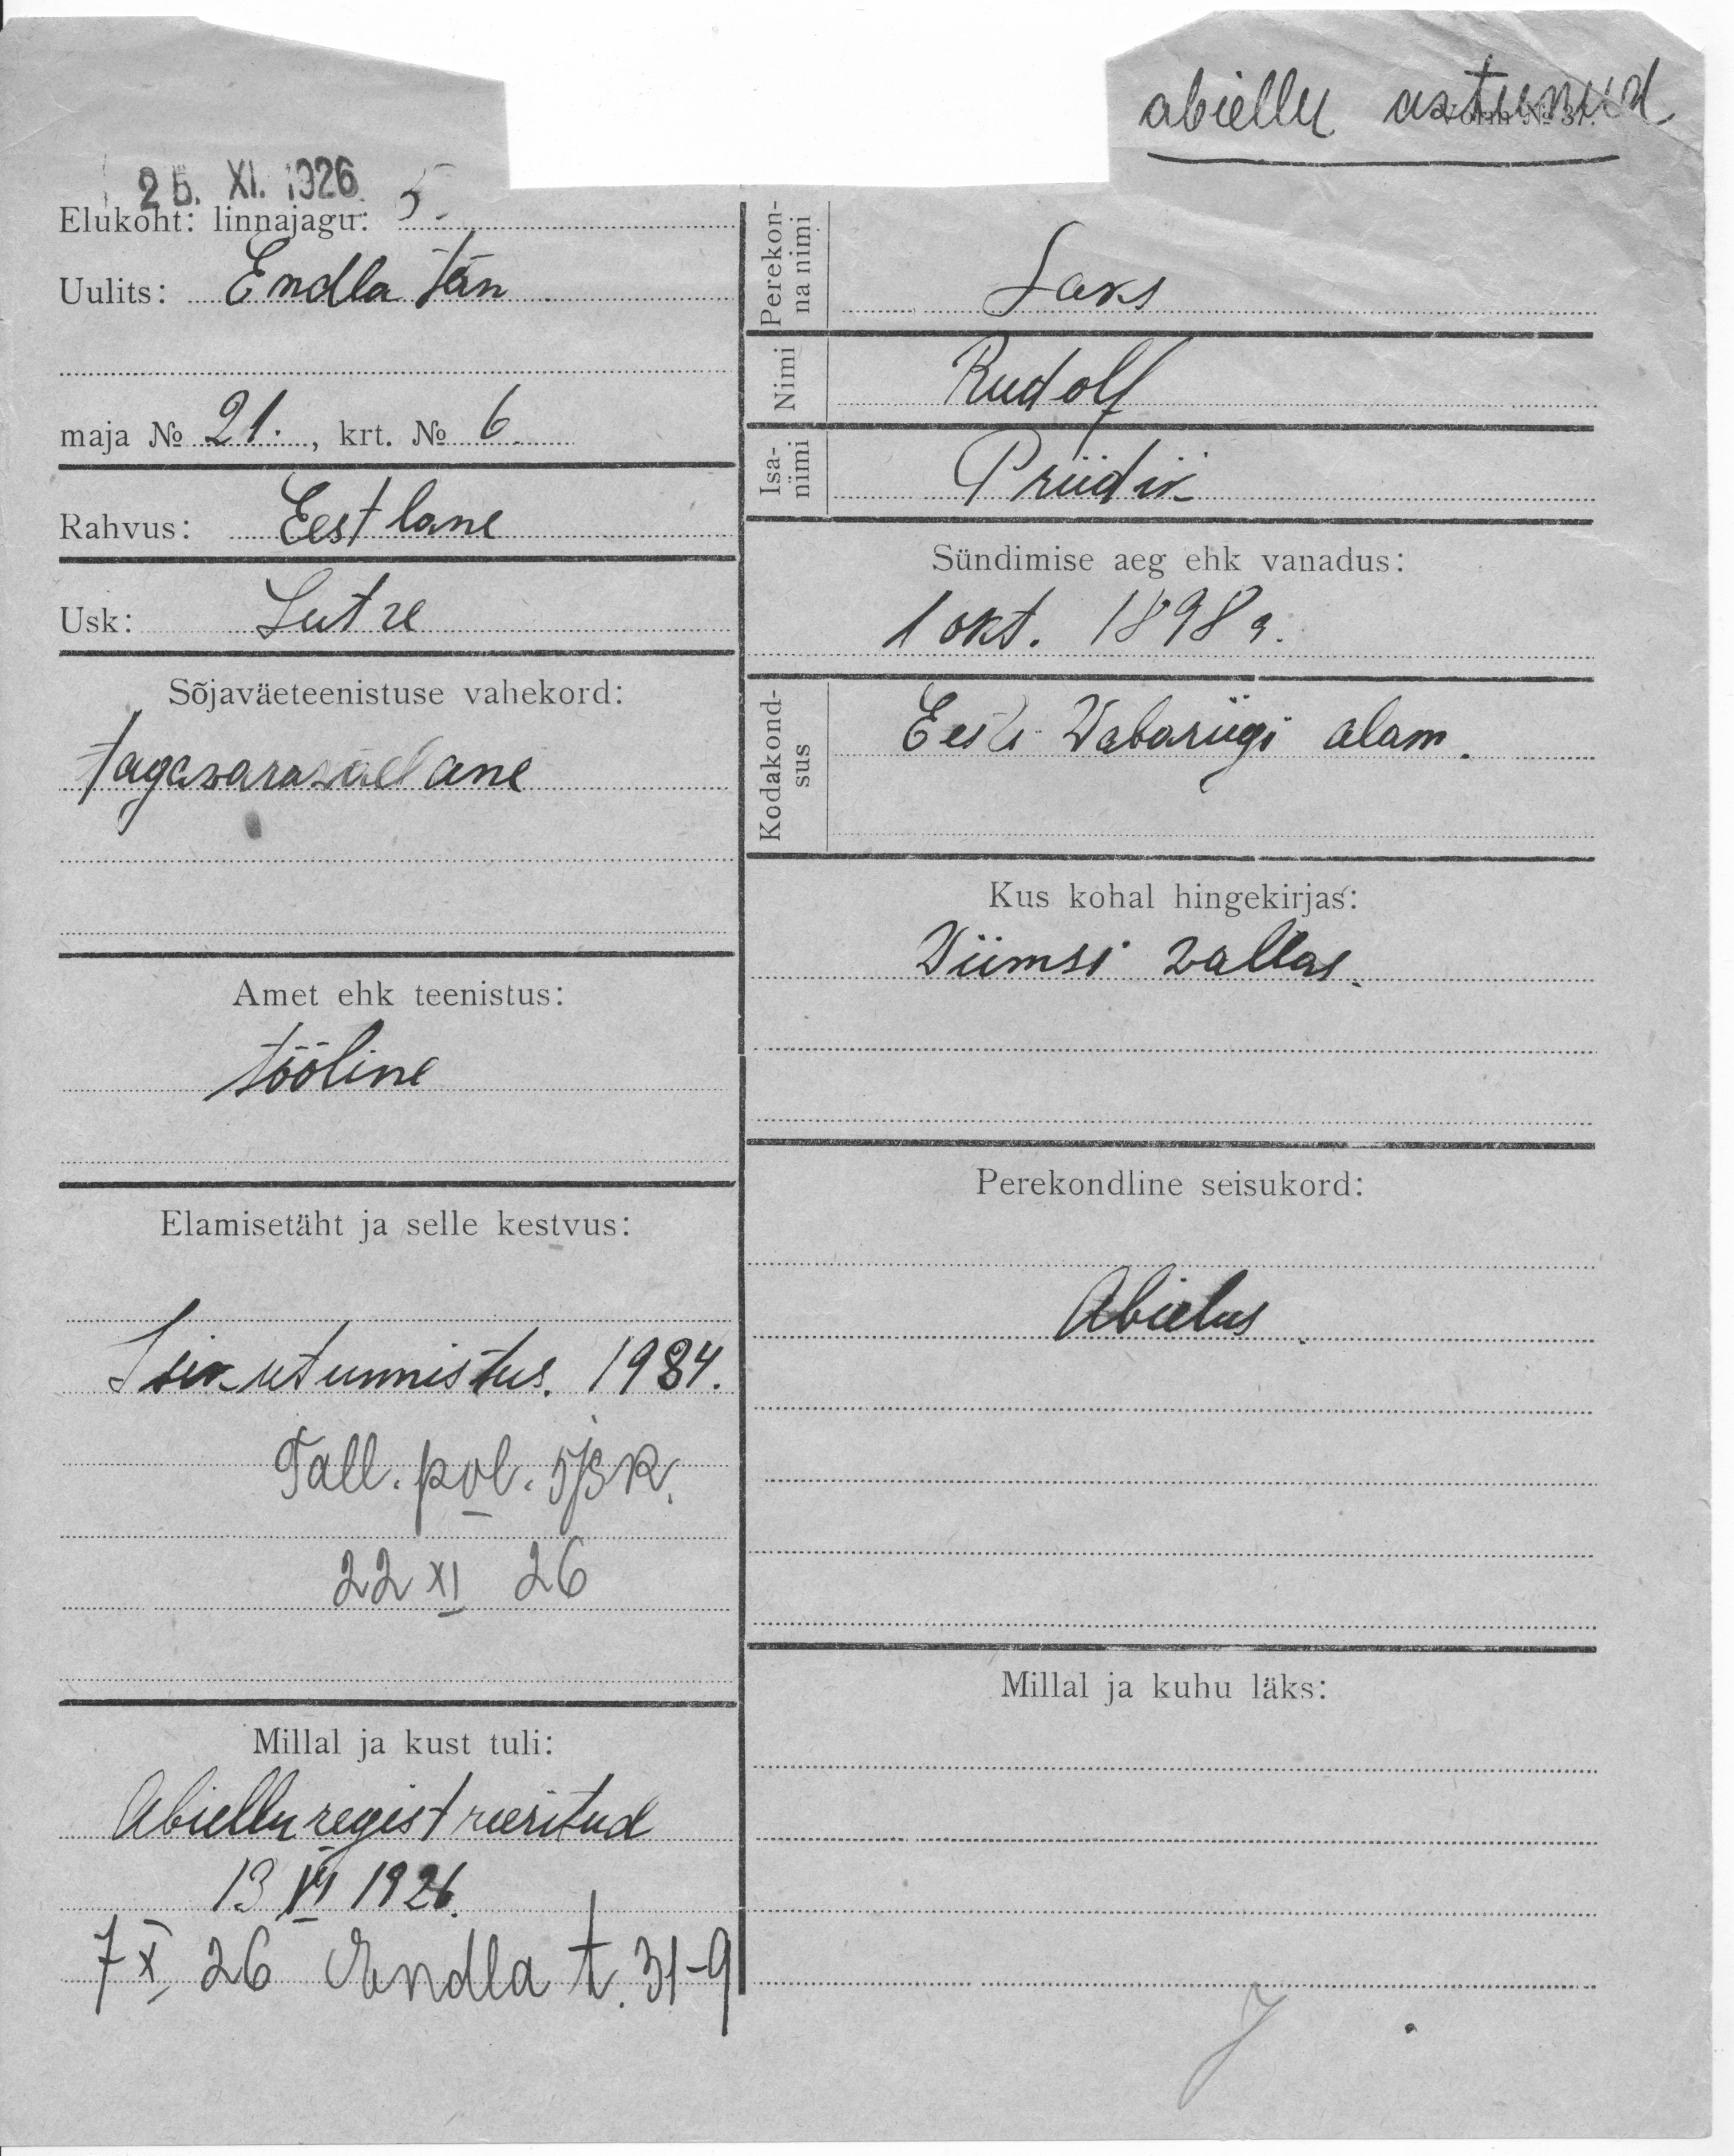 abiellu astunud
Vorm № 31.
25. XI. 1926
Elukoht: linnajagu: 5.
Uulits: Endla tän
maja № 21., krt. № 6.
Rahvus: Eestlane
Usk: Lutre
Sõjaväeteenistuse vahekord:
tagavaraväelane
Amet ehk teenistus:
tööline
Elamisetäht ja selle kestvus:
Isikutunnistus. 1984.
Tall. pol. 5 jsk.
22 XI 26
Millal ja kust tuli:
Abiellu registreeritud
13 VI 1926.
7 X 26 Endla t. 31-9
Perekonna-
na nimi
Laks
Nimi Rudolf
Isa-
nimi
Priidik
Sündimise aeg ehk vanadus:
1 okt. 1898 a.
Kodakond-
sus
Eesti Wabariigi alam.
Kus kohal hingekirjas:
Wiimsi vallas.
Perekondline seisukord:
Abielus.
Millal ja kuhu läks: